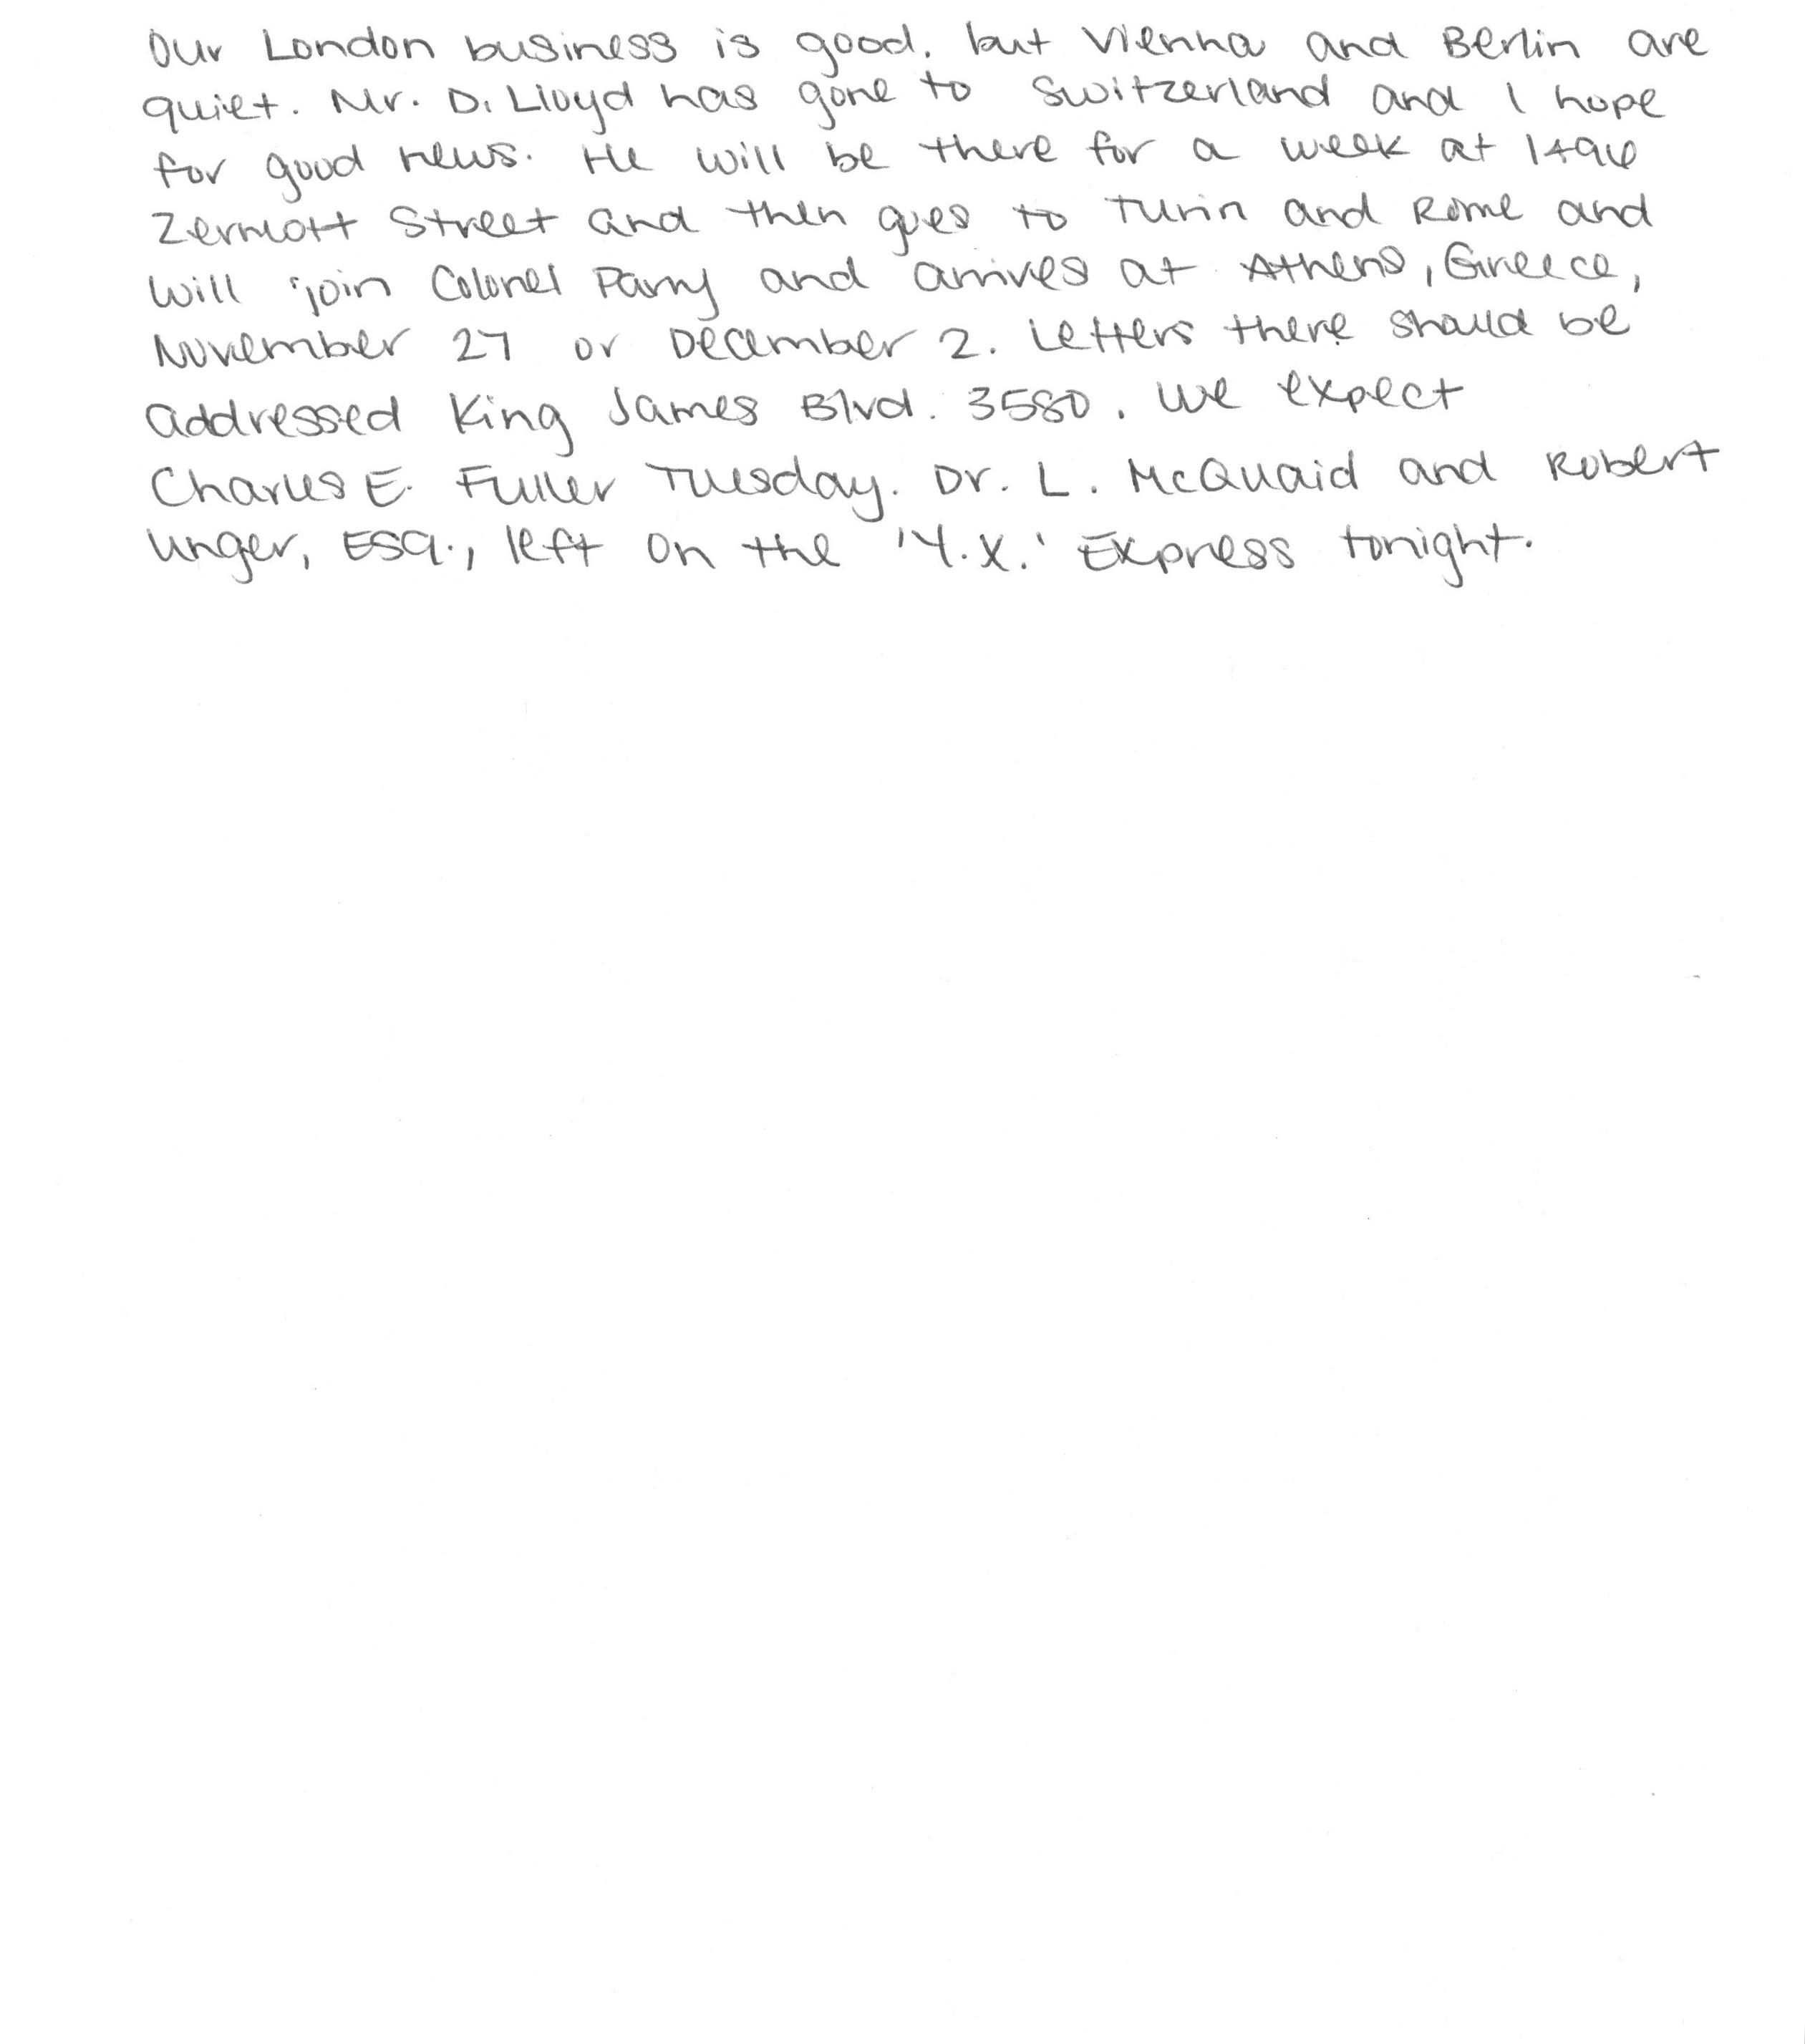 Our London business is good. but Vienna and Berlin are
quiet. Mr. D. Lloyd has gone to Switzerland and I hope
for good news. He will be there for a week at 1496
Zermott Street and then goes to Turin and Rome and
will join Colonel Parry and arrives at Athens, Greece,
November 27 or December 2. Letters there should be
addressed King James Blvd. 3580. We expect
Charles E. Fuller Tuesday. Dr. L. McQuaid and Robert
Unger, Esq., left on the 'Y.X.' Express tonight.